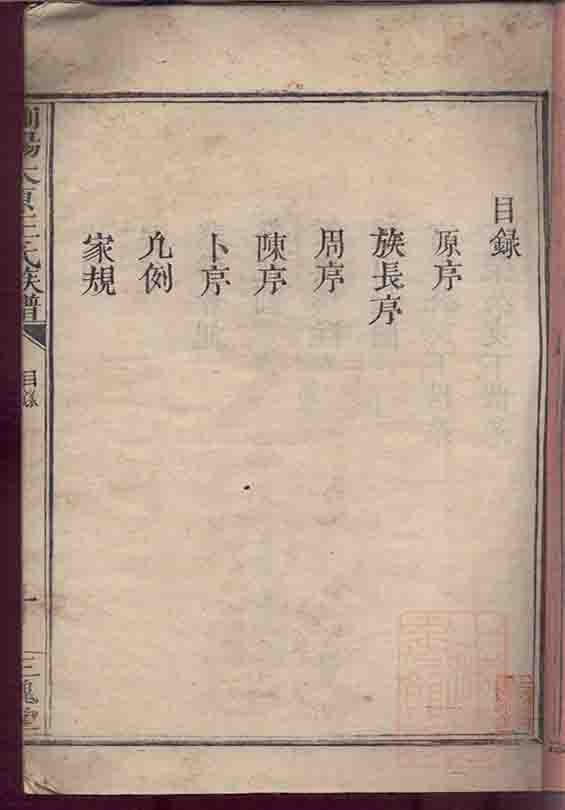 目錄
原序
族長序
周序
陳序
卜序
凡例
家規
陽太原王氏族譜
目錄
一
三槐堂